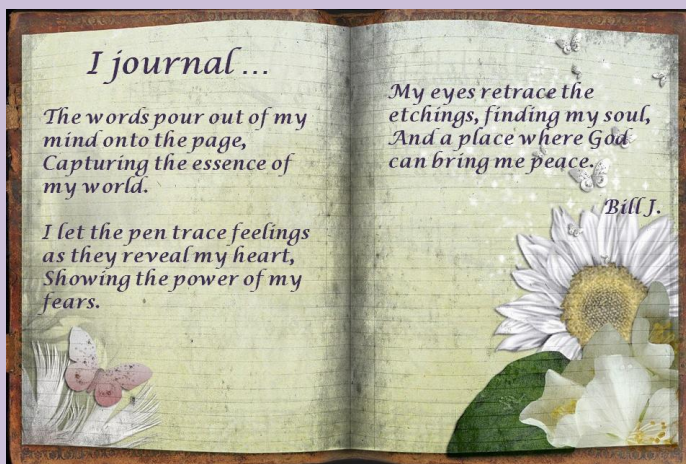 I journal ...
The words pour out of my
mind onto the page,
Capturing the essence of
my world.
I let the pen trace feelings
as they reveal my heart,
Showing the power of my
fears.
My eyes retrace the
etchings, finding my soul,
And a place where God
can bring me peace.
Bill J.